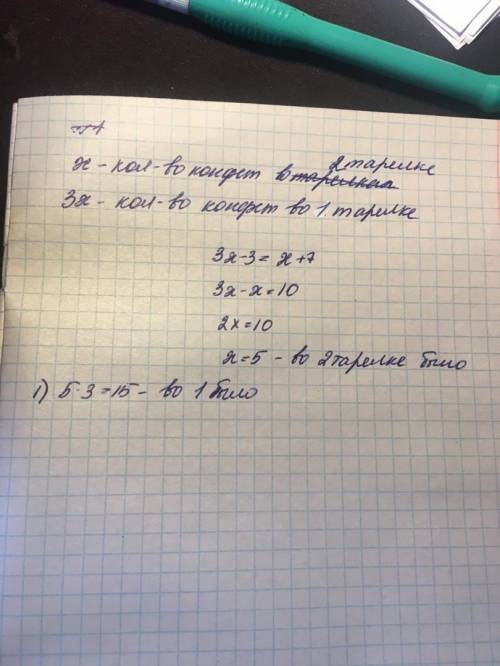 х - кол-во конфет во 2 тарелке
3х - кол-во конфет во 1 тарелке
3х-3 = х+7
3х-х=10
2х=10
х=5 - во 2 тарелке было
1) 5·3=15 - во 1 было